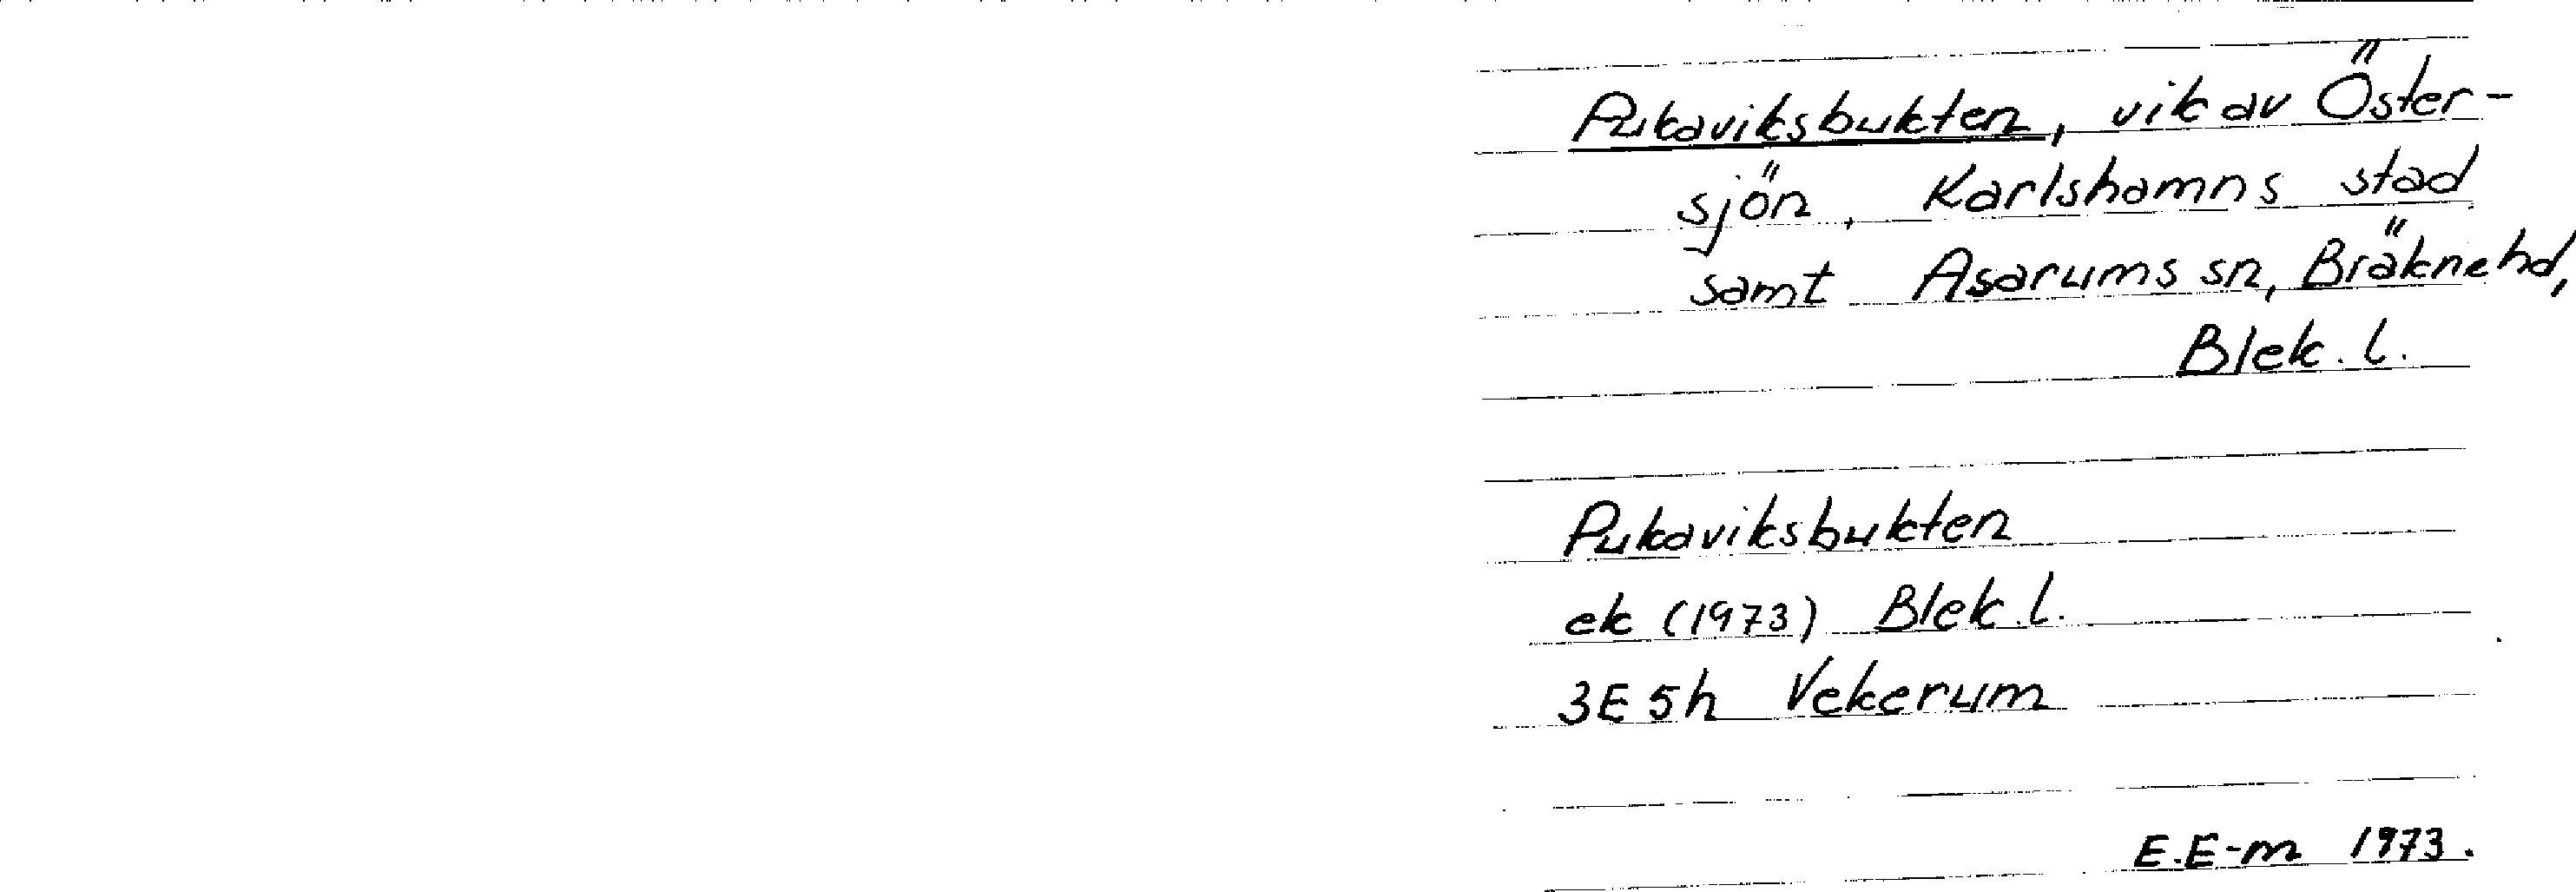 Pukaviksbukten, vik av Öster-
sjön, Karlshamns stad
samt Asarums sn, Bräkne hd,
Blek. l.
Pukaviksbukten
ek (1973) Blek. l.
3E 5h Vekerum
E.E-m 1973.